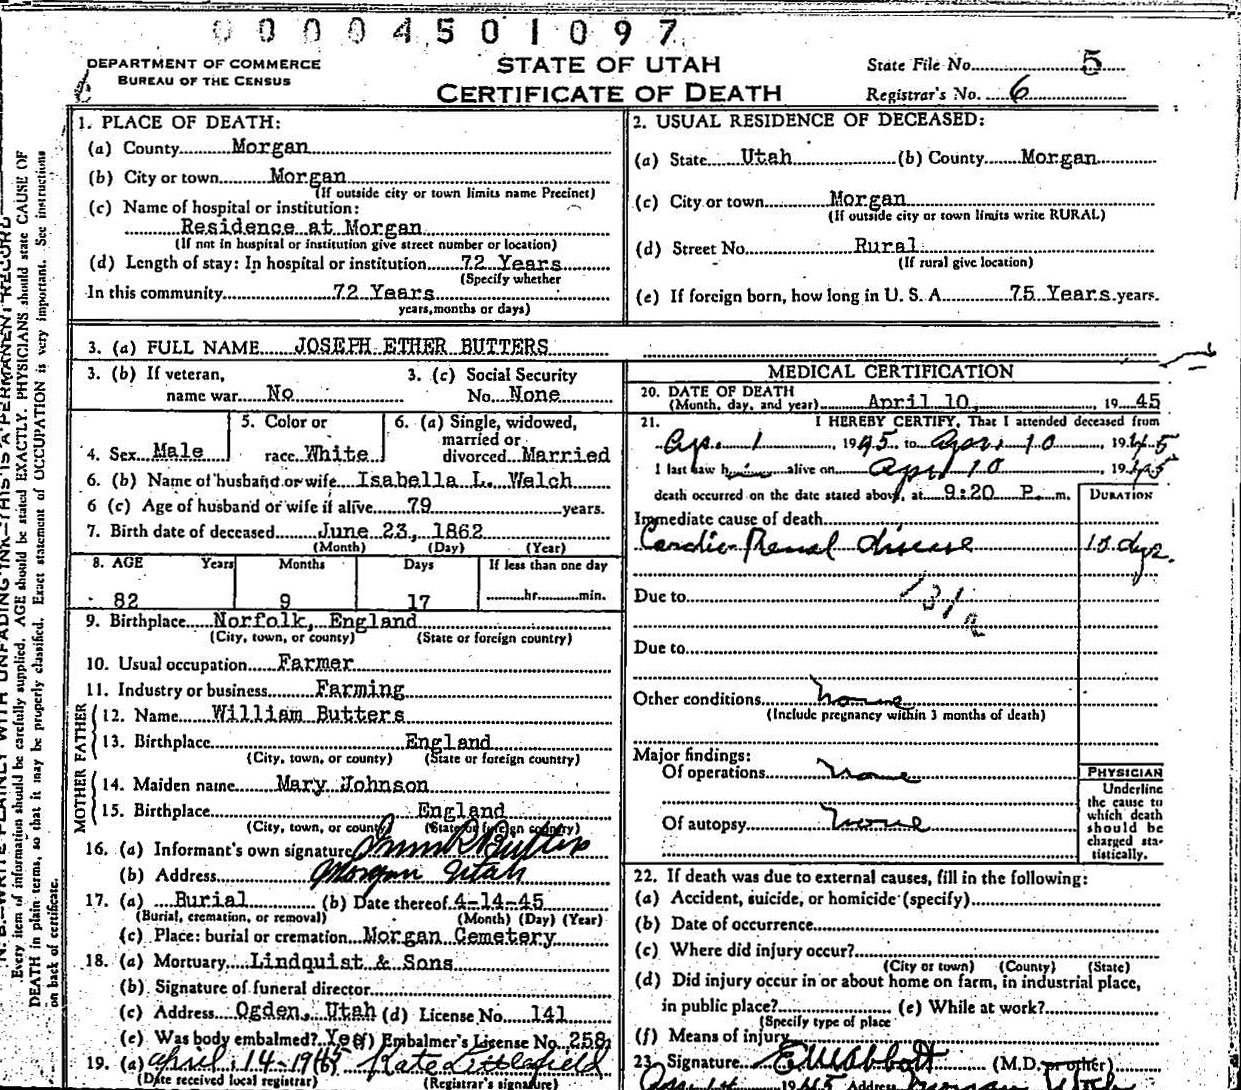 00004501097
DEPARTMENT OF COMMERCE
BUREAU OF THE CENSUS
STATE OF UTAH
CERTIFICATE OF DEATH
State File No. 5
Registrar's No. 6
1. PLACE OF DEATH:
(a) County Morgan
(b) City or town Morgan
(If outside city or town limits name Precinct)
(c) Name of hospital or institution:
Residence at Morgan
(If not in hospital or institution give street number or location)
(d) Length of stay: In hospital or institution 72 Years
(Specify whether
In this community 72 Years
years, months or days)
2. USUAL RESIDENCE OF DECEASED:
(a) State Utah (b) County Morgan
(c) City or town Morgan
(If outside city or town limits write RURAL)
(d) Street No. Rural
(If rural give location)
(e) If foreign born, how long in U. S. A. 75 Years years.
3. (a) FULL NAME JOSEPH ETHER BUTTERS
3. (b) If veteran, name war No
3. (c) Social Security No. None
4. Sex Male
5. Color or race White
6. (a) Single, widowed, married or divorced Married
6. (b) Name of husband or wife Isabella L. Welch
6 (c) Age of husband or wife if alive 79 years.
7. Birth date of deceased June 23, 1862
(Month) (Day) (Year)
8. AGE Years Months Days If less than one day
82 9 17 hr. min.
9. Birthplace Norfolk, England
(City, town, or county) (State or foreign country)
10. Usual occupation Farmer
11. Industry or business Farming
FATHER
12. Name William Butters
13. Birthplace England
(City, town, or county) (State or foreign country)
MOTHER
14. Maiden name Mary Johnson
15. Birthplace England
(City, town, or county) (State or foreign country)
16. (a) Informant's own signature Butters
(b) Address Morgan Utah
17. (a) Burial (b) Date thereof 4-14-45
(Burial, cremation, or removal) (Month) (Day) (Year)
(c) Place: burial or cremation Morgan Cemetery
18. (a) Mortuary Lindquist & Sons
(b) Signature of funeral director
(c) Address Ogden, Utah (d) License No. 141
(e) Was body embalmed? Yes (f) Embalmer's License No. 258
19. (a) April 14-1945 Kate Littlefield
(Date received local registrar) (Registrar's signature)
MEDICAL CERTIFICATION
20. DATE OF DEATH
(Month, day, and year) April 10, 1945
21. I HEREBY CERTIFY, That I attended deceased from
Apr. 1 1945 to Apr. 10 1945
I last saw him alive on Apr 10, 1945
death occurred on the date stated above, at 9:20 P. m.
DURATION
Immediate cause of death
Cardio-Renal disease 10 dys.
Due to 131a
Due to
Other conditions none
(Include pregnancy within 3 months of death)
Major findings:
Of operations none
Of autopsy none
PHYSICIAN
Underline
the cause to
which death
should be
charged sta-
tistically.
22. If death was due to external causes, fill in the following:
(a) Accident, suicide, or homicide (specify)
(b) Date of occurrence
(c) Where did injury occur?
(City or town) (County) (State)
(d) Did injury occur in or about home on farm, in industrial place,
in public place? (e) While at work?
(Specify type of place
(f) Means of injury
23. Signature E W Abbott (M.D. or other)
1945 Address Morgan Utah
N. B.—WRITE PLAINLY WITH UNFADING INK—THIS IS A PERMANENT RECORD
Every item of information should be carefully supplied. AGE should be stated EXACTLY. PHYSICIANS should state CAUSE OF
DEATH in plain terms, so that it may be properly classified. Exact statement of OCCUPATION is very important. See instructions
on back of certificate.